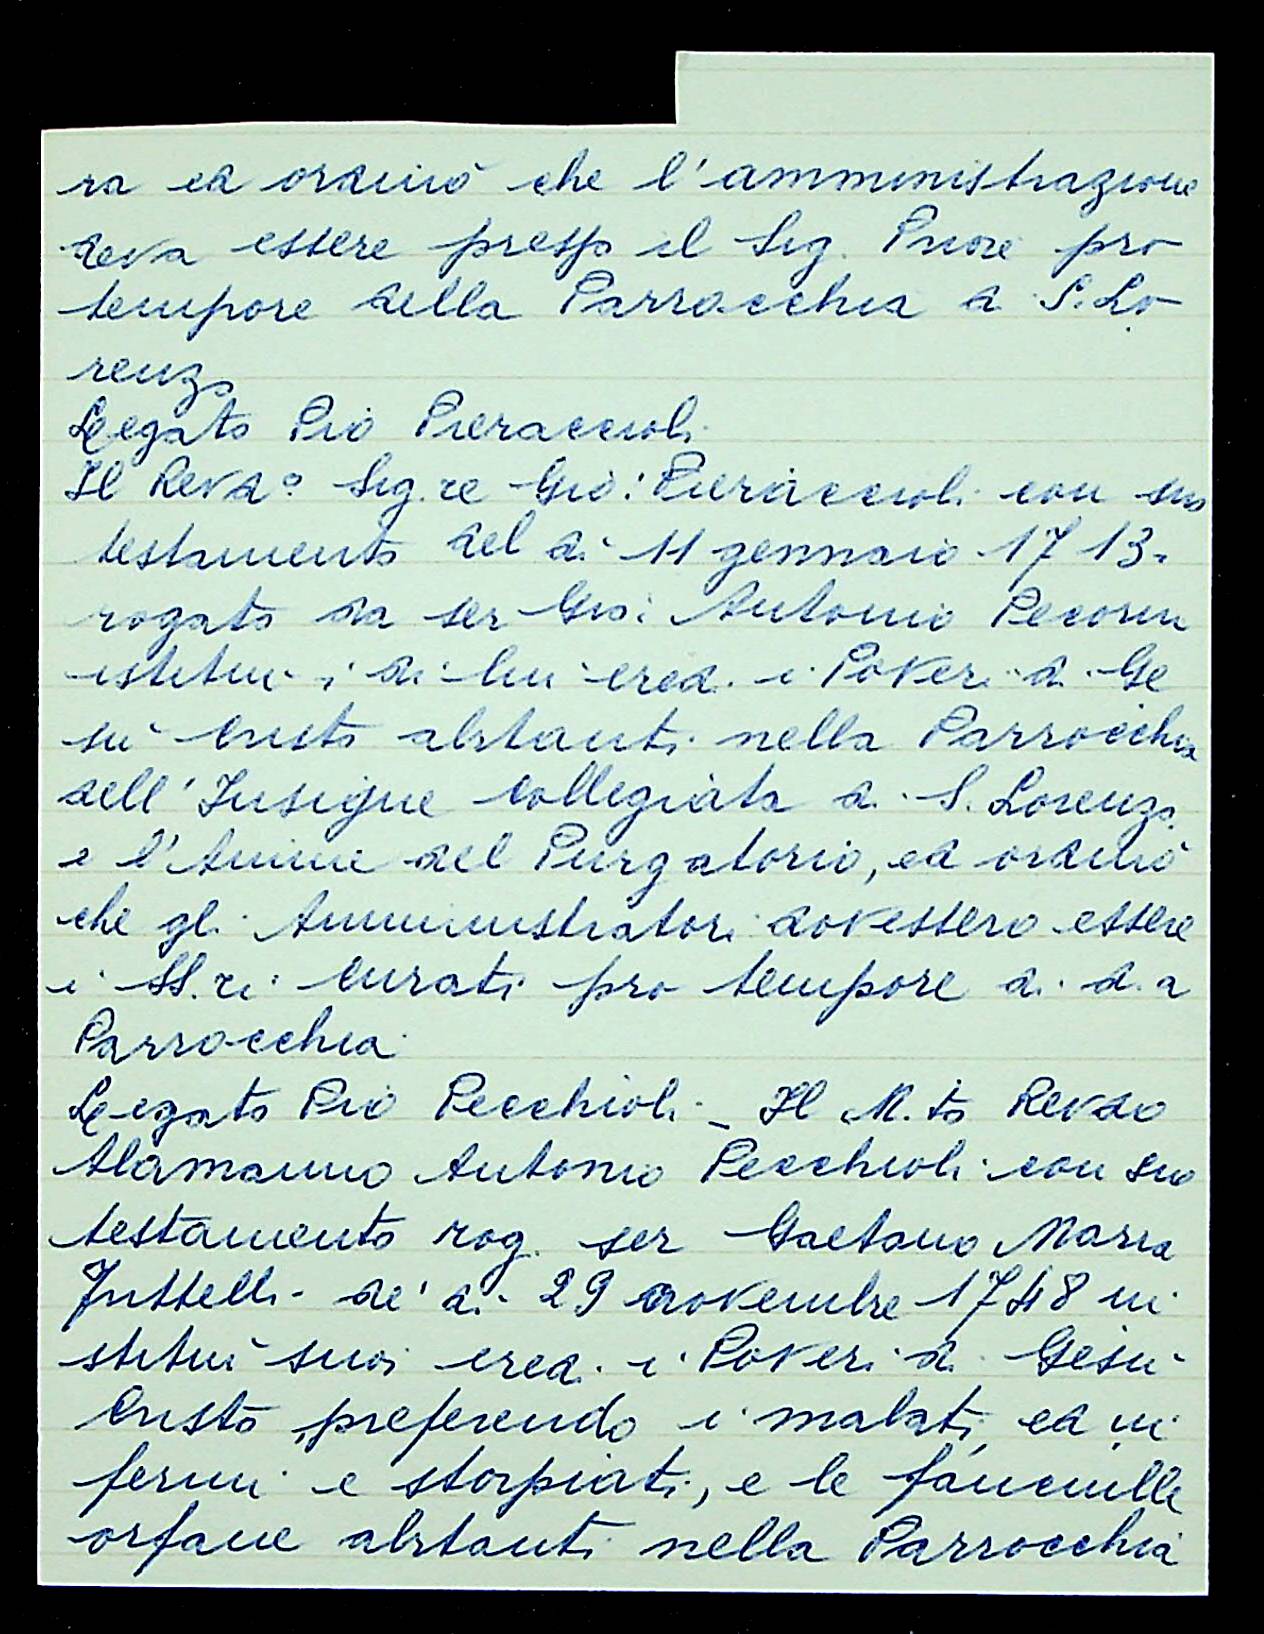 ra ed ordinò che l'amministrazione
deva essere presso il Sig. Priore pro
tempore della Parrocchia di S. Lo
renzo
Legato Pio Pieraccioli
Il Revdº Sig.re Gio: Pieraccioli con suo
testamento del dì 11 gennaio 1713
rogato da ser Gio: Antonio Pecorini
istituì i di lui eredi i Poveri di Ge
sù Cristo abitanti nella Parrocchia
dell'Insigne Collegiata di S. Lorenzo
e l'Anime del Purgatorio, ed ordinò
che gli Amministratori dovessero essere
i SS.ri Curati pro tempore di d.a
Parrocchia
Legato Pio Pecchioli - Il M.to Revdo
Alamanno Antonio Pecchioli con suo
testamento rog. ser Gaetano Maria
de' dì 29 novembre 1748 in
stituì suoi eredi i Poveri di Gesù
Cristo preferendo i malati ed in
fermi e storpiati, e le fanciulle
orfane abitanti nella Parrocchia